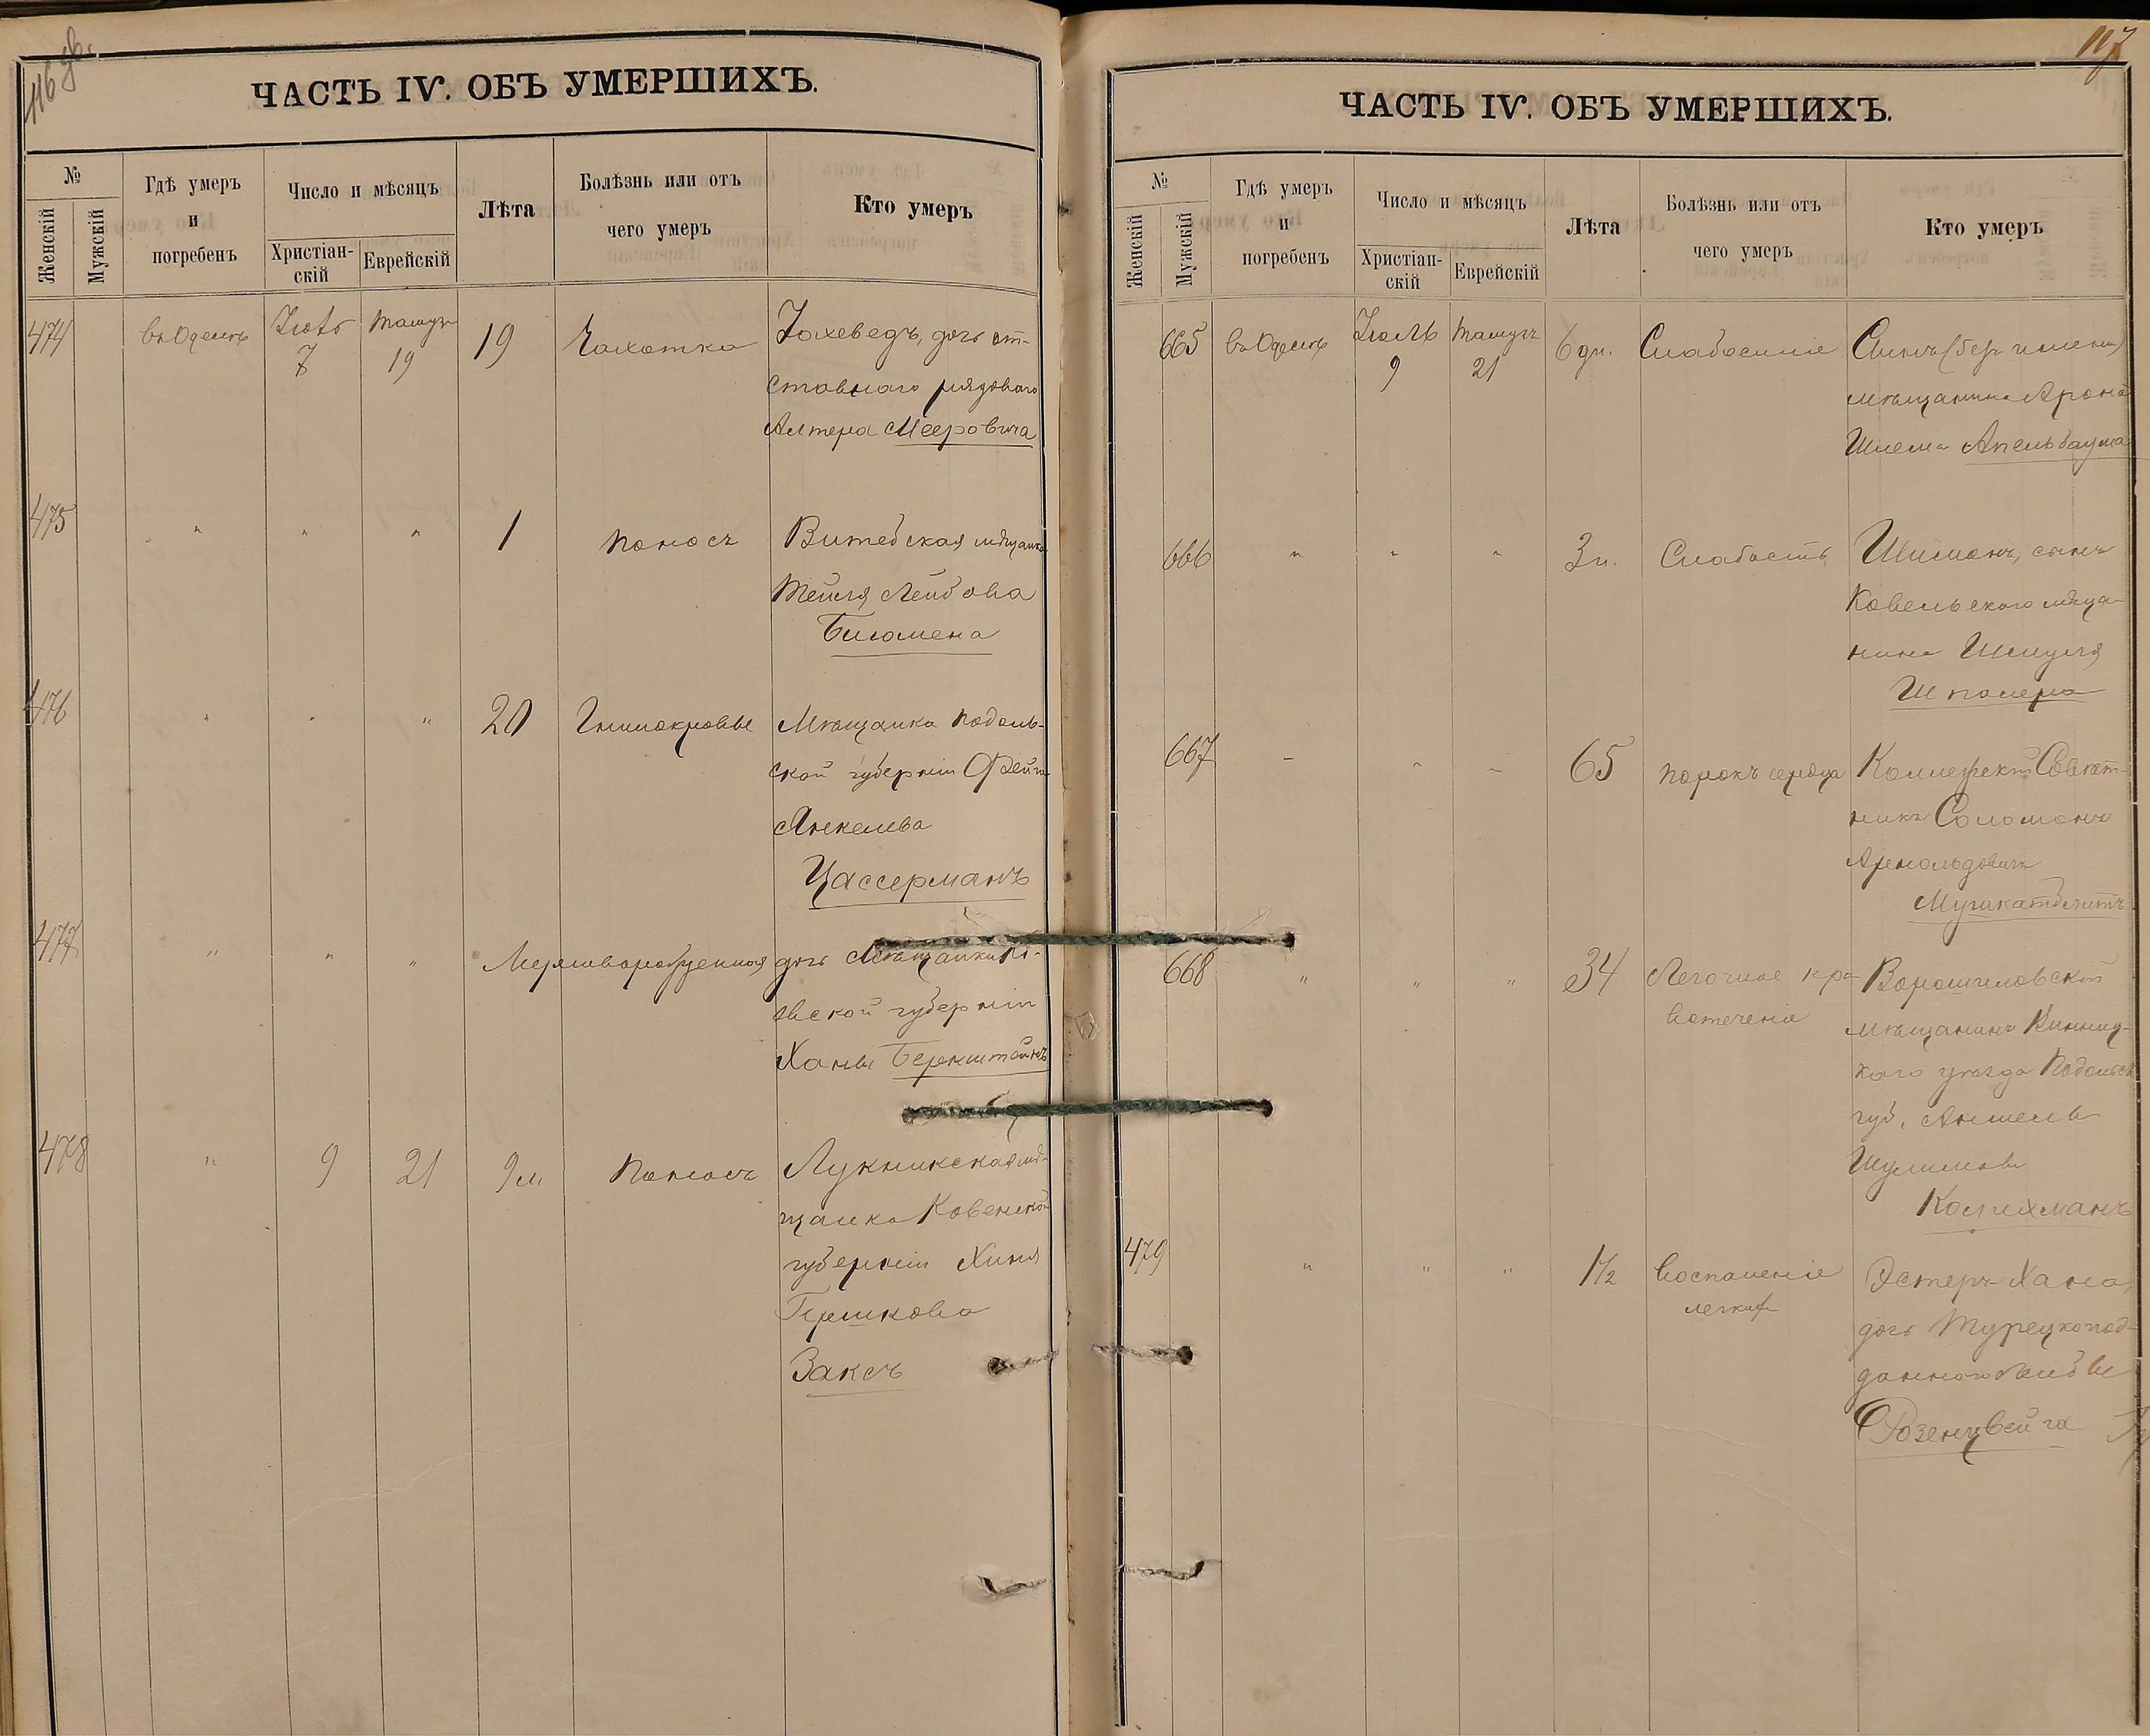 116 об.
ЧАСТЬ IV. ОБЪ УМЕРШИХЪ.
№
Женскій
Мужскій
Гдѣ умеръ
и
погребенъ
Число и мѣсяцъ
Христіан-
скій
Еврейскій
Лѣта
Болѣзнь или отъ
чего умеръ
Кто умеръ
474 въ Одессѣ Іюль 7 Тамузъ 19 19 Чахотка Іохеведъ, дочь от-
ставнаго рядоваго
Алтера Мееровича
475 " " " 1 Поносъ Витебская мѣщанка
Тейля Лейбова
Блюмена
476 " " " 20 Гнилокровье Мѣщанка Подоль-
ской губерніи Фейга
Янкелева
Цассерманъ
477 " " " Мертворожденная дочь Мѣщанки Кі-
евской губерніи
Ханы Беренштейнъ
478 " 9 21 9 м. Поносъ Лукникская мѣ-
щанка Ковенской
губерніи Хиня
Гершкова
Заксъ
117
ЧАСТЬ IV. ОБЪ УМЕРШИХЪ.
№
Женскій
Мужскій
Гдѣ умеръ
и
погребенъ
Число и мѣсяцъ
Христіан-
скій
Еврейскій
Лѣта
Болѣзнь или отъ
чего умеръ
Кто умеръ
665 въ Одессѣ Іюль 9 Тамузъ 21 6 дн. Слабосиліе Сынъ (безъ имени)
мѣщанина Арона
Шлема Апельбаума
666 " " " 3 н. Слабость Шлиомъ, сынъ
Ковельскаго мѣща-
нина Шмуля
Шполера
667 " " " 65 Порокъ сердца Коллежскій Совѣт-
никъ Соломонъ
Арнольдовичъ
668 " " " 34 Легочное кро-
вотеченіе Ворошиловскій
мѣщанинъ Винниц-
каго уѣзда Подольск.
губ. Аншель
Шулимовъ
Колихманъ
479 " " " 1½ Воспаленіе
легкихъ Эстеръ-Хана,
дочь Турецкопод-
даннаго Лейбы
Розенцвейга